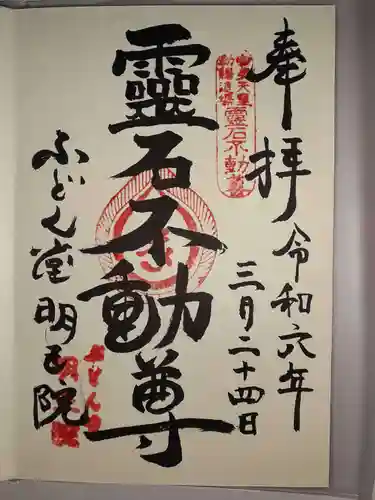 奉拝
令和六年
三月二十四日
靈石不動尊
靈石不動尊
ふどん堂明王院